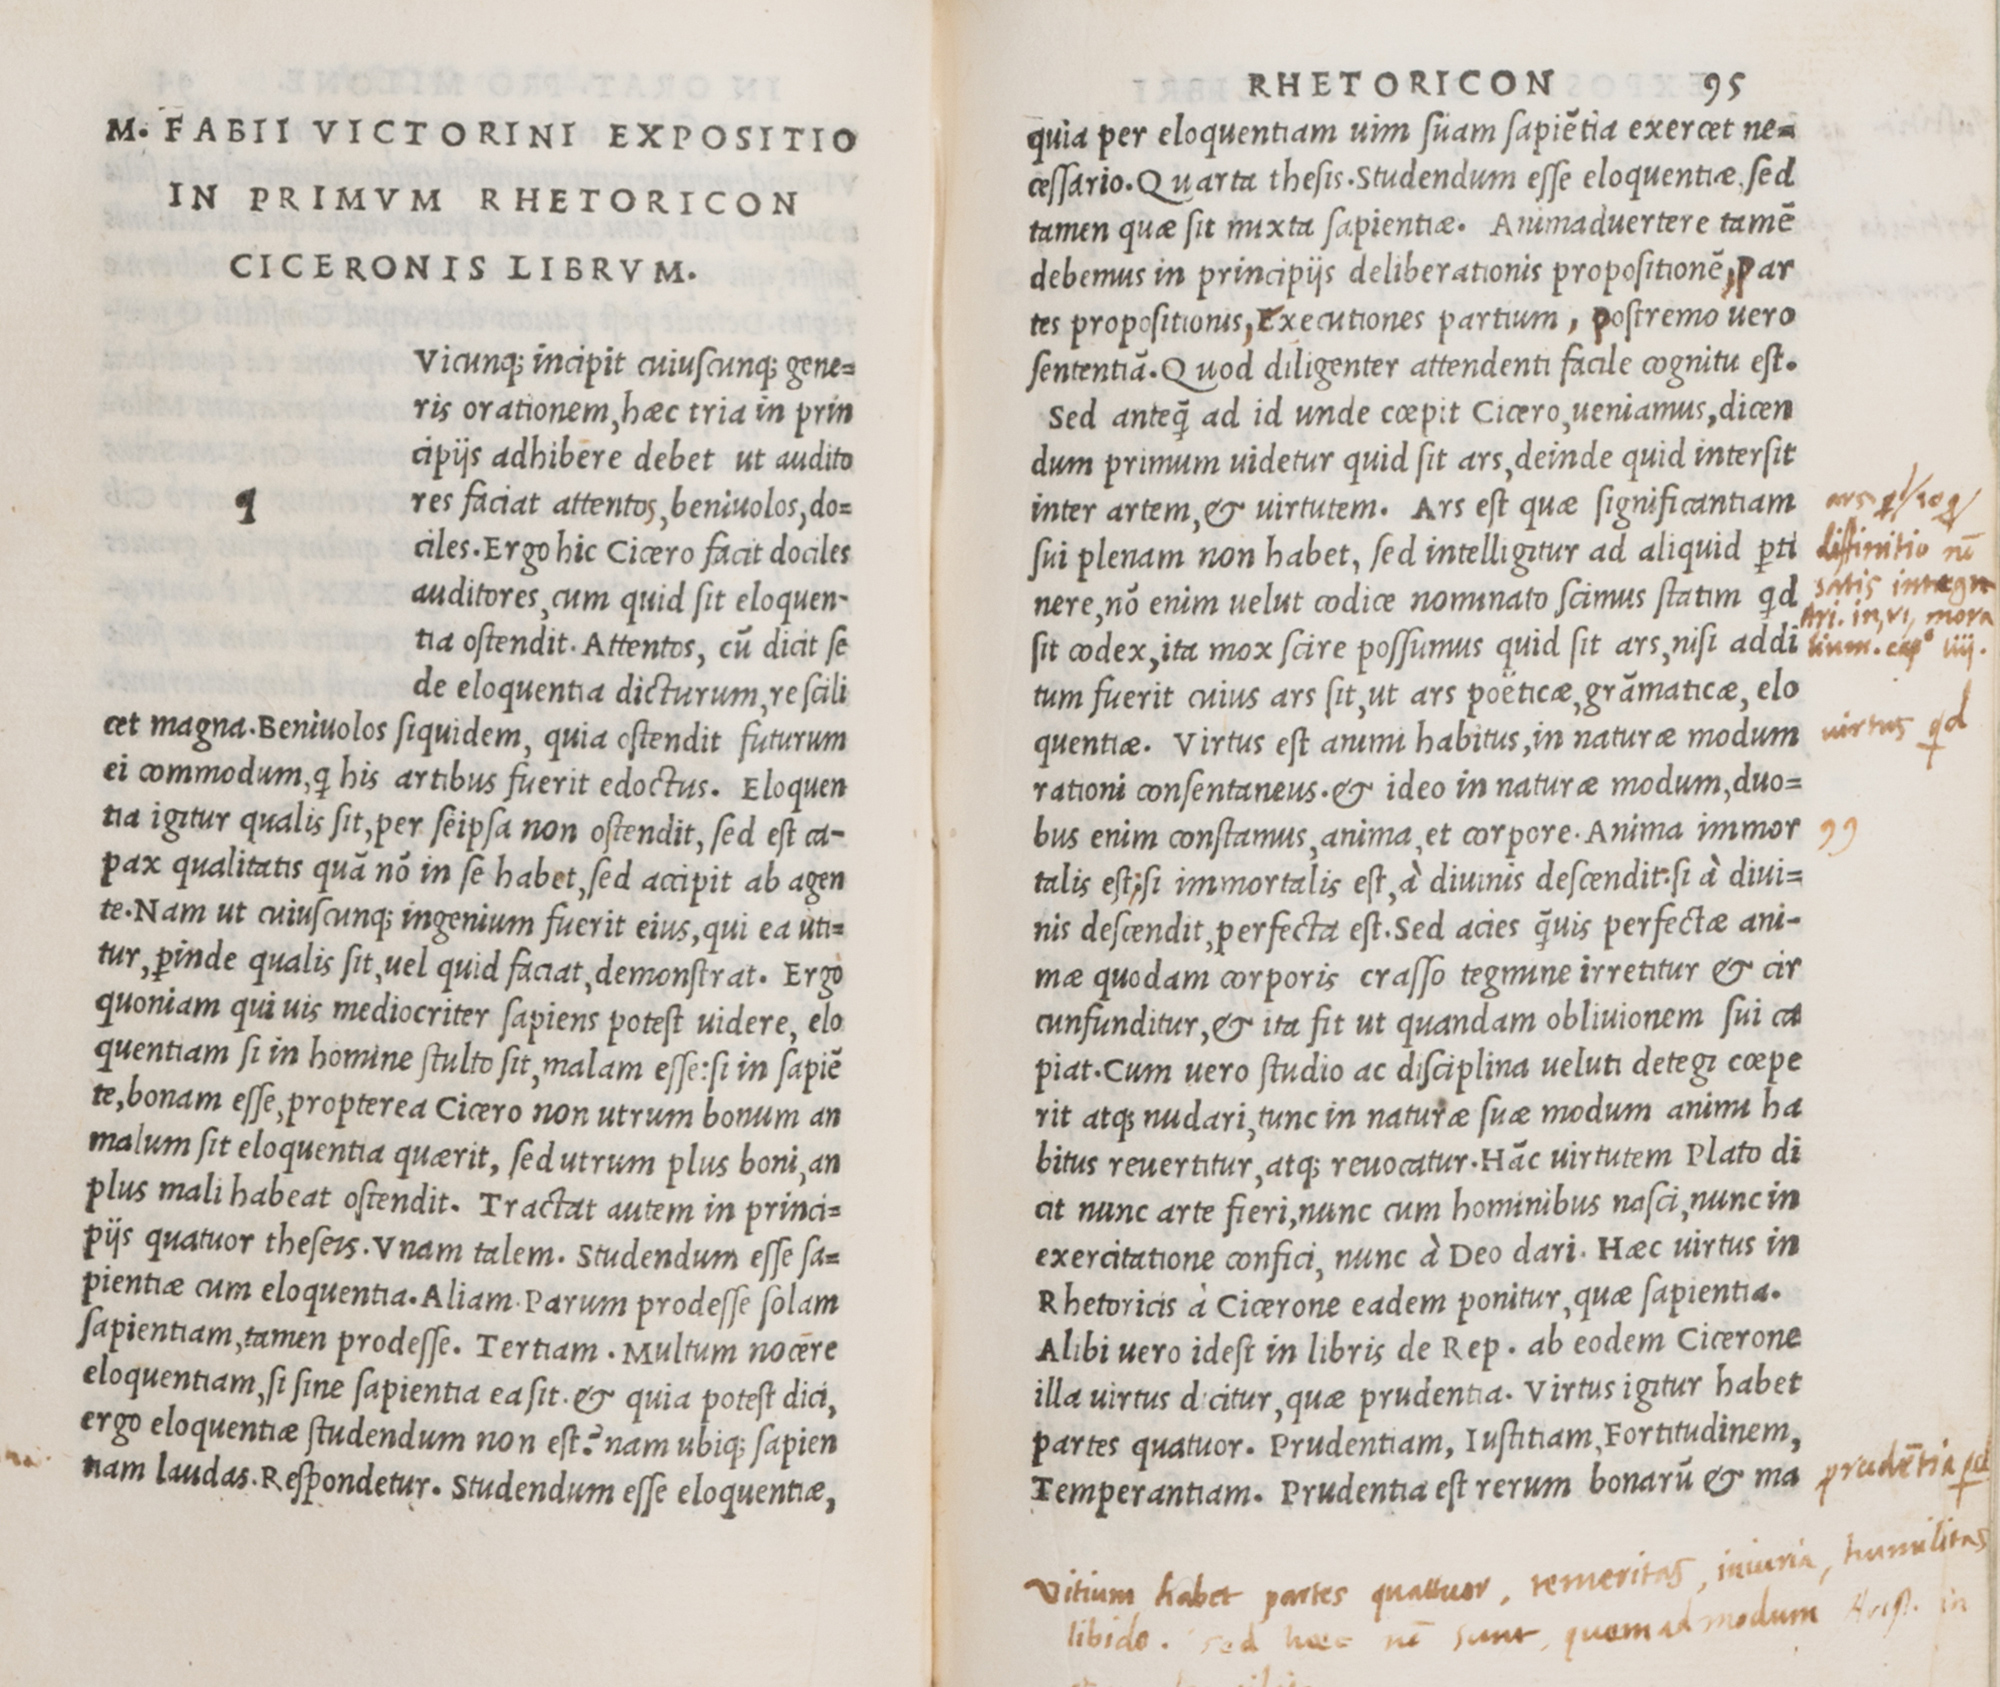 M. FABII VICTORINI EXPOSITIO
IN PRIMVM RHETORICON
CICERONIS LIBRVM.
q
Vicunq; incipit cuiuſcunq; gene=
ris orationem, hæc tria in prin
cipijs adhibere debet ut audito
res faciat attentos, beniuolos, do=
ciles. Ergo hic Cicero facit dociles
auditores, cum quid ſit eloquen-
tia oſtendit. Attentos, cū dicit ſe
de eloquentia dicturum, re ſcili
cet magna. Beniuolos ſiquidem, quia oſtendit futurum
ei commodum, q̨ his artibus fuerit edoctus. Eloquen
tia igitur qualis ſit, per ſeipſa non oſtendit, ſed eſt ca-
pax qualitatis quā nō in ſe habet, ſed accipit ab agen
te. Nam ut cuiuſcunq; ingenium fuerit eius, qui ea uti=
tur, ꝑinde qualis ſit, uel quid faciat, demonſtrat. Ergo
quoniam qui uis mediocriter ſapiens poteſt uidere, elo
quentiam ſi in homine ſtulto ſit, malam eſſe: ſi in ſapiē
te, bonam eſſe, propterea Cicero non utrum bonum an
malum ſit eloquentia quærit, ſed utrum plus boni, an
plus mali habeat oſtendit. Tractat autem in princi=
pijs quatuor theſeis. Vnam talem. Studendum eſſe ſa=
pientiæ cum eloquentia. Aliam. Parum prodeſſe ſolam
ſapientiam, tamen prodeſſe. Tertiam. Multum nocere
eloquentiam, ſi ſine ſapientia ea ſit. & quia poteſt dici,
ergo eloquentiæ ſtudendum non eſt? nam ubiq; ſapien
tiam laudas. Reſpondetur. Studendum eſſe eloquentiæ,
RHETORICON 95
quia per eloquentiam uim ſuam ſapiētia exercet ne=
ceſſario. Quarta theſis. Studendum eſſe eloquentiæ, ſed
tamen quæ ſit mixta ſapientiæ. Animaduertere tamē
debemus in principijs deliberationis propoſitionē, Par
tes propoſitionis, Executiones partium, poſtremo uero
ſententiā. Quod diligenter attendenti facile cognitu eſt.
Sed anteq̄ ad id unde cœpit Cicero, ueniamus, dicen
dum primum uidetur quid ſit ars, deinde quid interſit
inter artem, & uirtutem. Ars eſt quæ ſignificantiam
ſui plenam non habet, ſed intelligitur ad aliquid ꝑti
nere, nō enim uelut codice nominato ſcimus ſtatim qd
ſit codex, ita mox ſcire poſſumus quid ſit ars, niſi addi
tum fuerit cuius ars ſit, ut ars poëticæ, grāmaticæ, elo
quentiæ. Virtus eſt animi habitus, in naturæ modum
rationi conſentaneus. & ideo in naturæ modum, duo=
bus enim conſtamus, anima, et corpore. Anima immor
talis eſt; ſi immortalis eſt, à diuinis deſcendit: ſi à diui=
nis deſcendit, perfecta eſt. Sed acies q̄uis perfectæ ani-
mæ quodam corporis craſſo tegmine irretitur & cir
cunfunditur, & ita fit ut quandam obliuionem ſui ca
piat. Cum uero ſtudio ac diſciplina ueluti detegi cœpe
rit atq; nudari, tunc in naturæ ſuæ modum animi ha
bitus reuertitur, atq; reuocatur. Hāc uirtutem Plato di
cit nunc arte fieri, nunc cum hominibus naſci, nunc in
exercitatione confici, nunc à Deo dari. Hæc uirtus in
Rhetoricis à Cicerone eadem ponitur, quæ ſapientia.
Alibi uero ideſt in libris de Rep. ab eodem Cicerone
illa uirtus dicitur, quæ prudentia. Virtus igitur habet
partes quatuor. Prudentiam, Iuſtitiam, Fortitudinem,
Temperantiam. Prudentia eſt rerum bonarū & ma
diffinitio nō
satis integra
Ari. in, vi, mora
lium. cap° iiij.
uirtus qd
prudētia qd
Vitium habet partes quattuor, temeritas, iniuria, humilitas
libido. sed hæc nō sunt, quemadmodum Arist. in